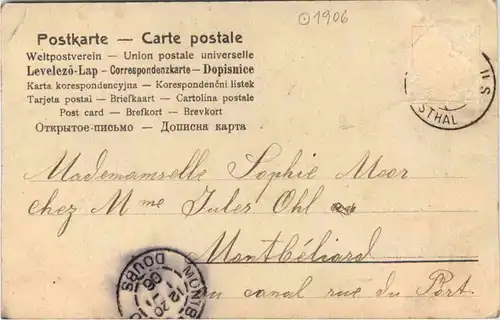 ⊙1906
Postkarte — Carte postale
Weltpostverein — Union postale universelle
Levelező-Lap – Correspondenzkarte – Dopisnice
Karta korespondencyjna — Korespondenční lístek
Tarjeta postal — Briefkaart — Cartolina postale
Post card — Brefkort — Brevkort
Открытое-письмо — Дописна карта
STHAL
Mademamselle Sophie Moor
chez Mme Jules Ohl
Montbéliard
au canal rue du Port.
MONTB
DOUBS
20
12
06